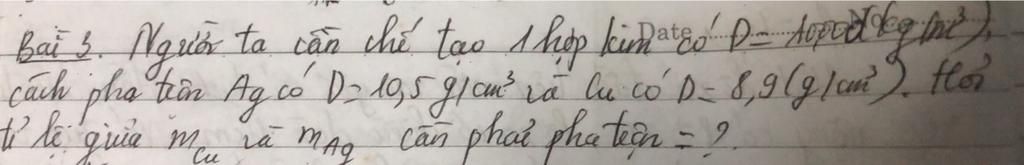 Bài 3. Người ta cần chế tạo 1 hợp kim Date có D = 10000 (kg/m³),
cách pha trộn Ag có D = 10,5 g/cm³ và Cu có D = 8,9 (g/cm³). Hỏi
tỉ lệ giữa m_Cu và m_Ag cần phải pha trộn = ?